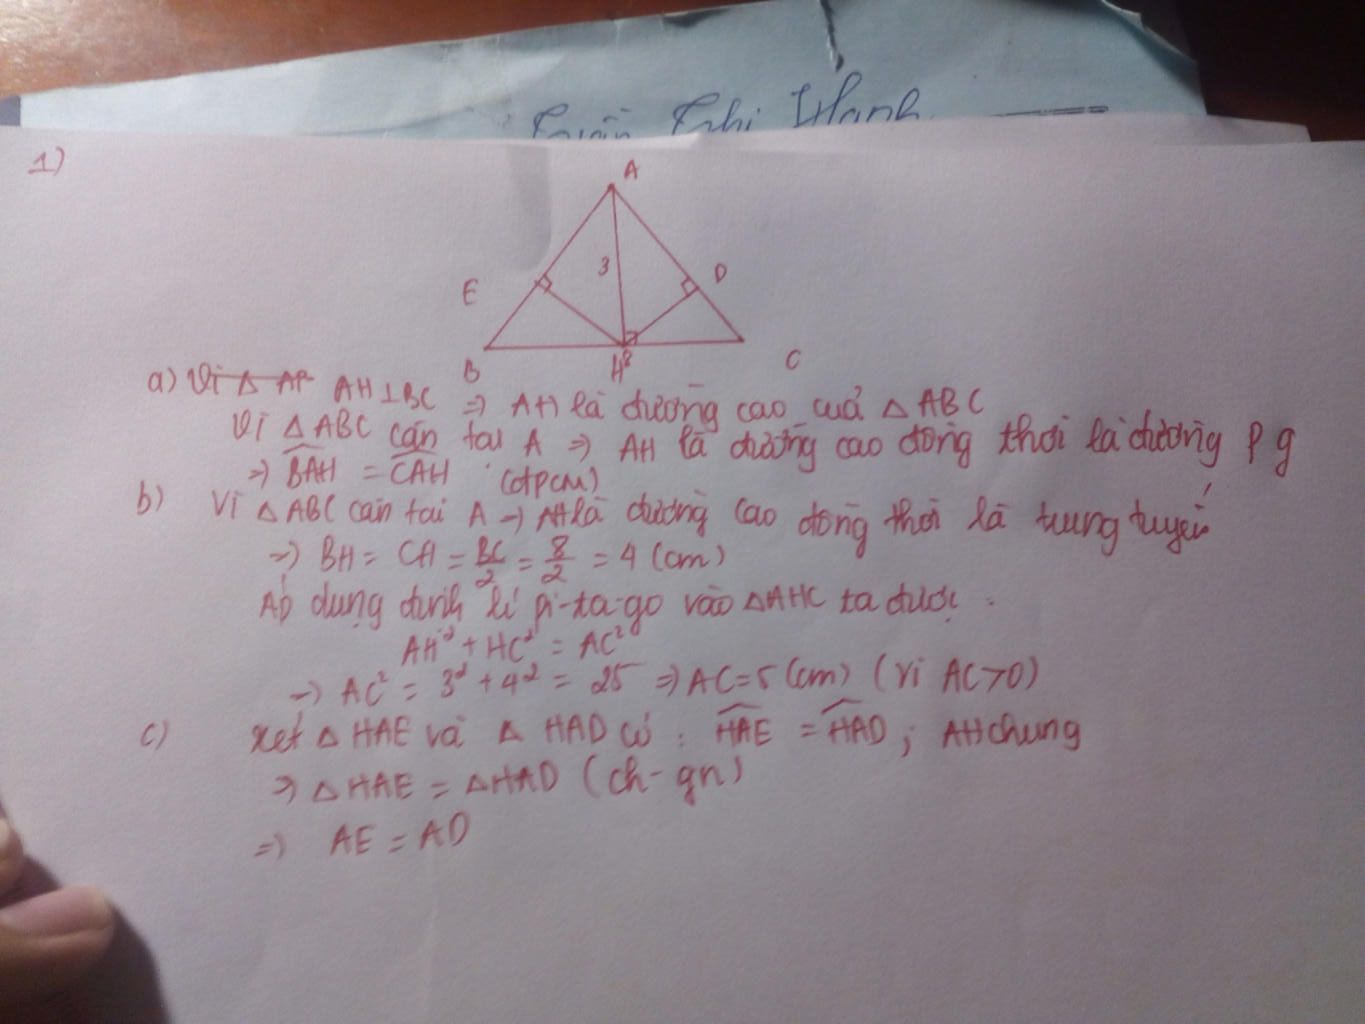 Trần Thị Hạnh
1)
A
3
E
D
B
H
8
C
a) Vì △ AP AH⊥BC ⇒ AH là đường cao cuả △ABC
Vì △ABC cân tại A ⇒ AH là đường cao đồng thời là đường p g
⇒ \widehat{BAH} = \widehat{CAH} (đpcm)
b) Vì △ABC cân tai A ⇒ AH là đường cao đồng thời là trung tuyến
⇒ BH = CH = \frac{BC}{2} = \frac{8}{2} = 4 (cm)
Áp dụng định lí pi-ta-go vào △AHC ta được .
AH² + HC² = AC²
⇒ AC² = 3² + 4² = 25 ⇒ AC = 5 (cm) (Vì AC>0)
c) xét △ HAE và △ HAD có : \widehat{HAE} = \widehat{HAD} ; AH chung
⇒ △HAE = △HAD (ch - gn)
⇒ AE = AD